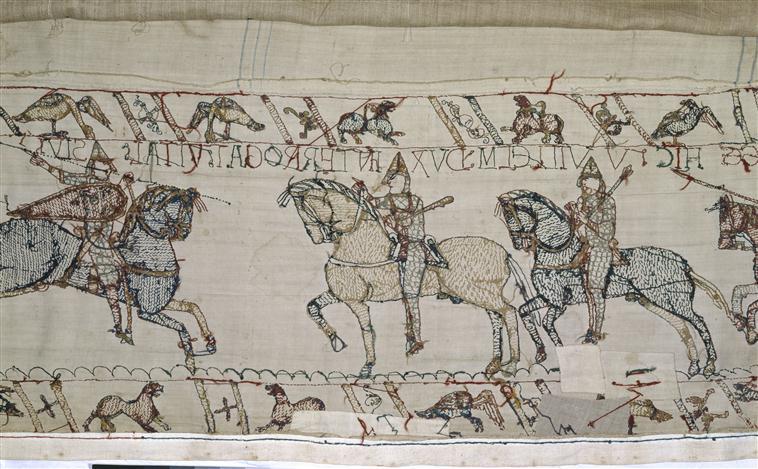 GE HIC VVILLELM DVX INTERROGAT VITAL SI VI